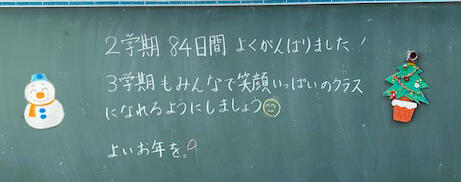 2学期 84日間 よくがんばりました!
3学期もみんなで笑顔いっぱいのクラス
になれるようにしましょう
よいお年を。